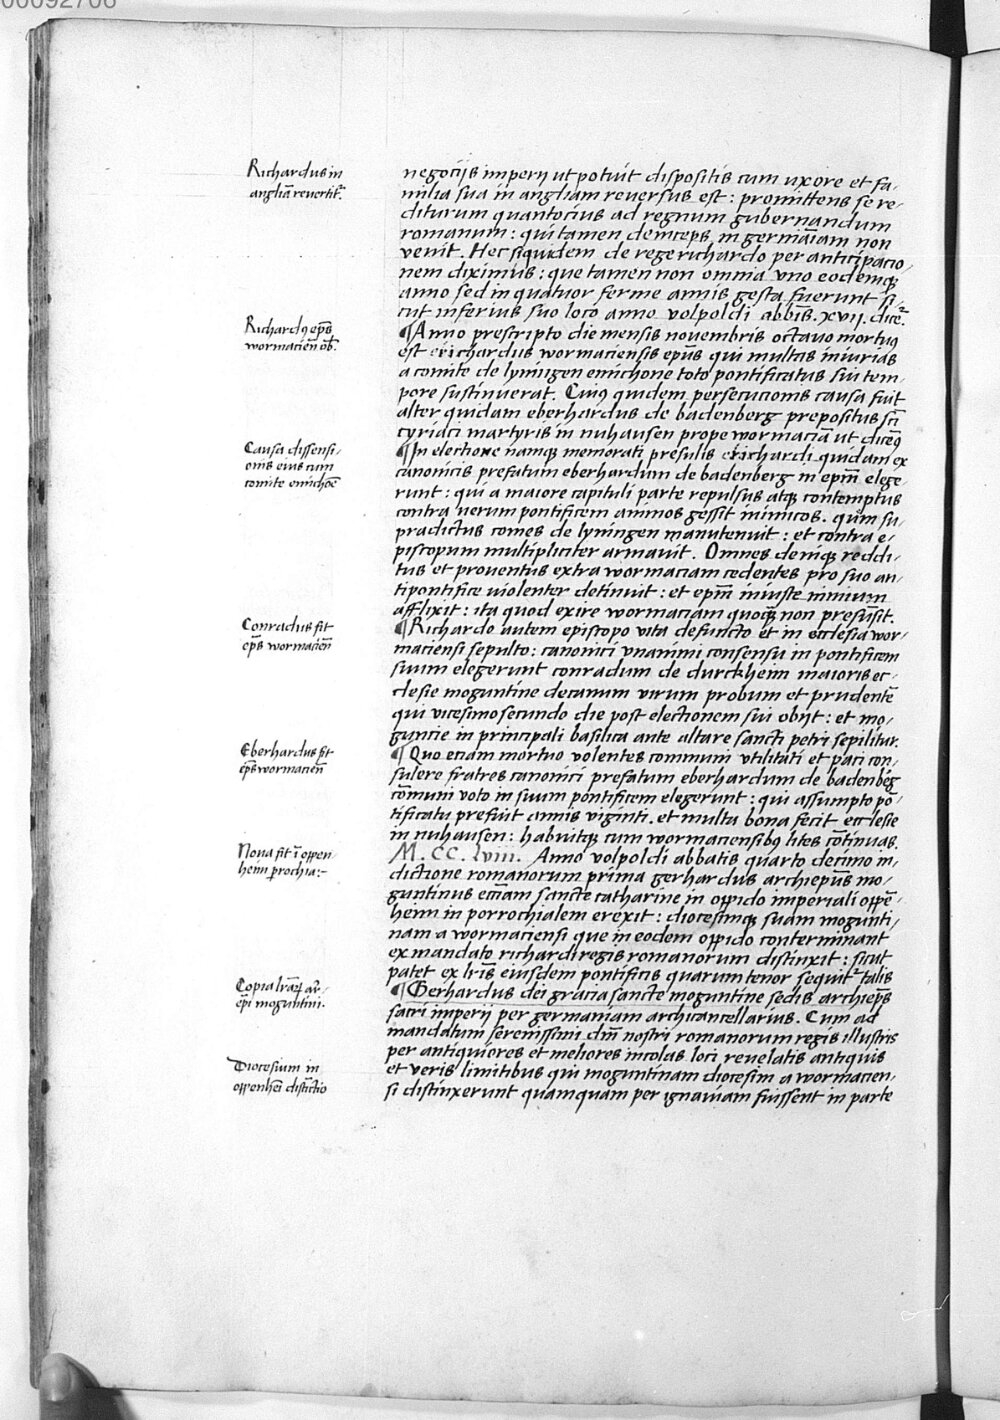 00092706
Richardus in
angliā reuertit᷑.
negocijs imperij ut potuit dispositis cum uxore et fa-
milia sua in angliam reuersus est : promittens se re-
diturum quantocius ad regnum gubernandum
romanum : qui tamen deinceps in germāiam non
venit. Hec siquidem de rege richardo per anticipacio-
nem diximus : que tamen non omnia uno eodemqꝫ
anno sed in quatuor ferme annis gesta fuerunt si-
cut inferius suo loco anno volpoldi abbīs .xvii. dicet᷑.
Richardꝰ ep̄s
wormacieñ ob̄.
¶Anno prescripto die mensis nouembris octauo mortuꝰ
est erichardus wormaciensis ep̄us qui multas iniurias
a comite de lyningen emichone toto pontificatus sui tem-
pore sustinuerat. Cuiꝰ quidem persecucionis causa fuit
alter quidam eberhardus de badenberg prepositus sc̄i
cyriaci martyris in nuhausen prope wormaciā ut dicemꝰ
Causa dissensi-
onis eius cum
comite emichōe
¶In electione namqꝫ memorati presulis erichardi quidam ex
canonicis prefatum eberhardum de badenberg in ep̄m elege
runt : qui a maiore capituli parte repulsus atqꝫ contemptus
contra uerum pontificem animos gessit inimicos. quem su-
pradictus comes de lyningen manutenuit : et contra e-
piscopum multipliciter armauit. Omnes deniqꝫ reddi-
tus et prouentus extra wormaciam cedentes pro suo an-
tipontifice uiolenter detinuit : et ep̄m iniuste nimium
afflixit : ita quod exire wormaciam quoqꝫ non presūsit.
Conradus fit
ep̄s wormacieñ
¶Richardo autem episcopo vita defuncto et in ecclesia wor-
maciensi sepulto : canonici vnanimi consensu in pontificem
suum elegerunt conradum de durckheim maioris ec-
clesie moguntine decanum virum probum et prudentē
qui vicesimosecundo die post electionem sui obijt : et mo-
guncie in principali basilica ante altare sancti petri sepilitur.
Eberhardus fit
ep̄s wormacieñ
¶Quo eciam mortuo volentes communi vtilitati et paci con-
sulere fratres canonici prefatum eberhardum de badenbēg
cōmuni voto in suum pontificem elegerunt : qui assumpto pō-
tificatu prefuit annis viginti. et multa bona fecit ecclesie
in nuhausen : habuitqꝫ cum wormaciensibꝰ lites cōtinuas.
Noua fit ī oppen-
heim prochia:-
M. CC. lviii. Anno volpoldi abbatis quarto decimo in-
dictione romanorum prima gerhardus archiep̄us mo-
guntinus ecciam sancte catharine in oppido imperiali oppē-
heim in porrochialem erexit : diocesimqꝫ suam mogunti-
nam a wormaciensi que in eodem oppido conterminant
ex mandato richardi regis romanorum distinxit : sicut
patet ex lr̄is eiusdem pontificis quarum tenor sequit᷑ talis
Copia lrāꝝ ar-
ep̄i moguntini.
¶Gerhardus dei gracia sancte moguntine sedis archiep̄s
sacri imperij per germaniam archicancellarius. Cum ad
mandatum serenissimi dn̄i nostri romanorum regis illustris
per antiquiores et meliores incolas loci reuelatis antiquis
Diocesium in
oppenheī distīctio
et veris limitibus qui moguntinam diocesim a wormacien-
si distinxerunt quamquam per ignauiam fuissent in parte